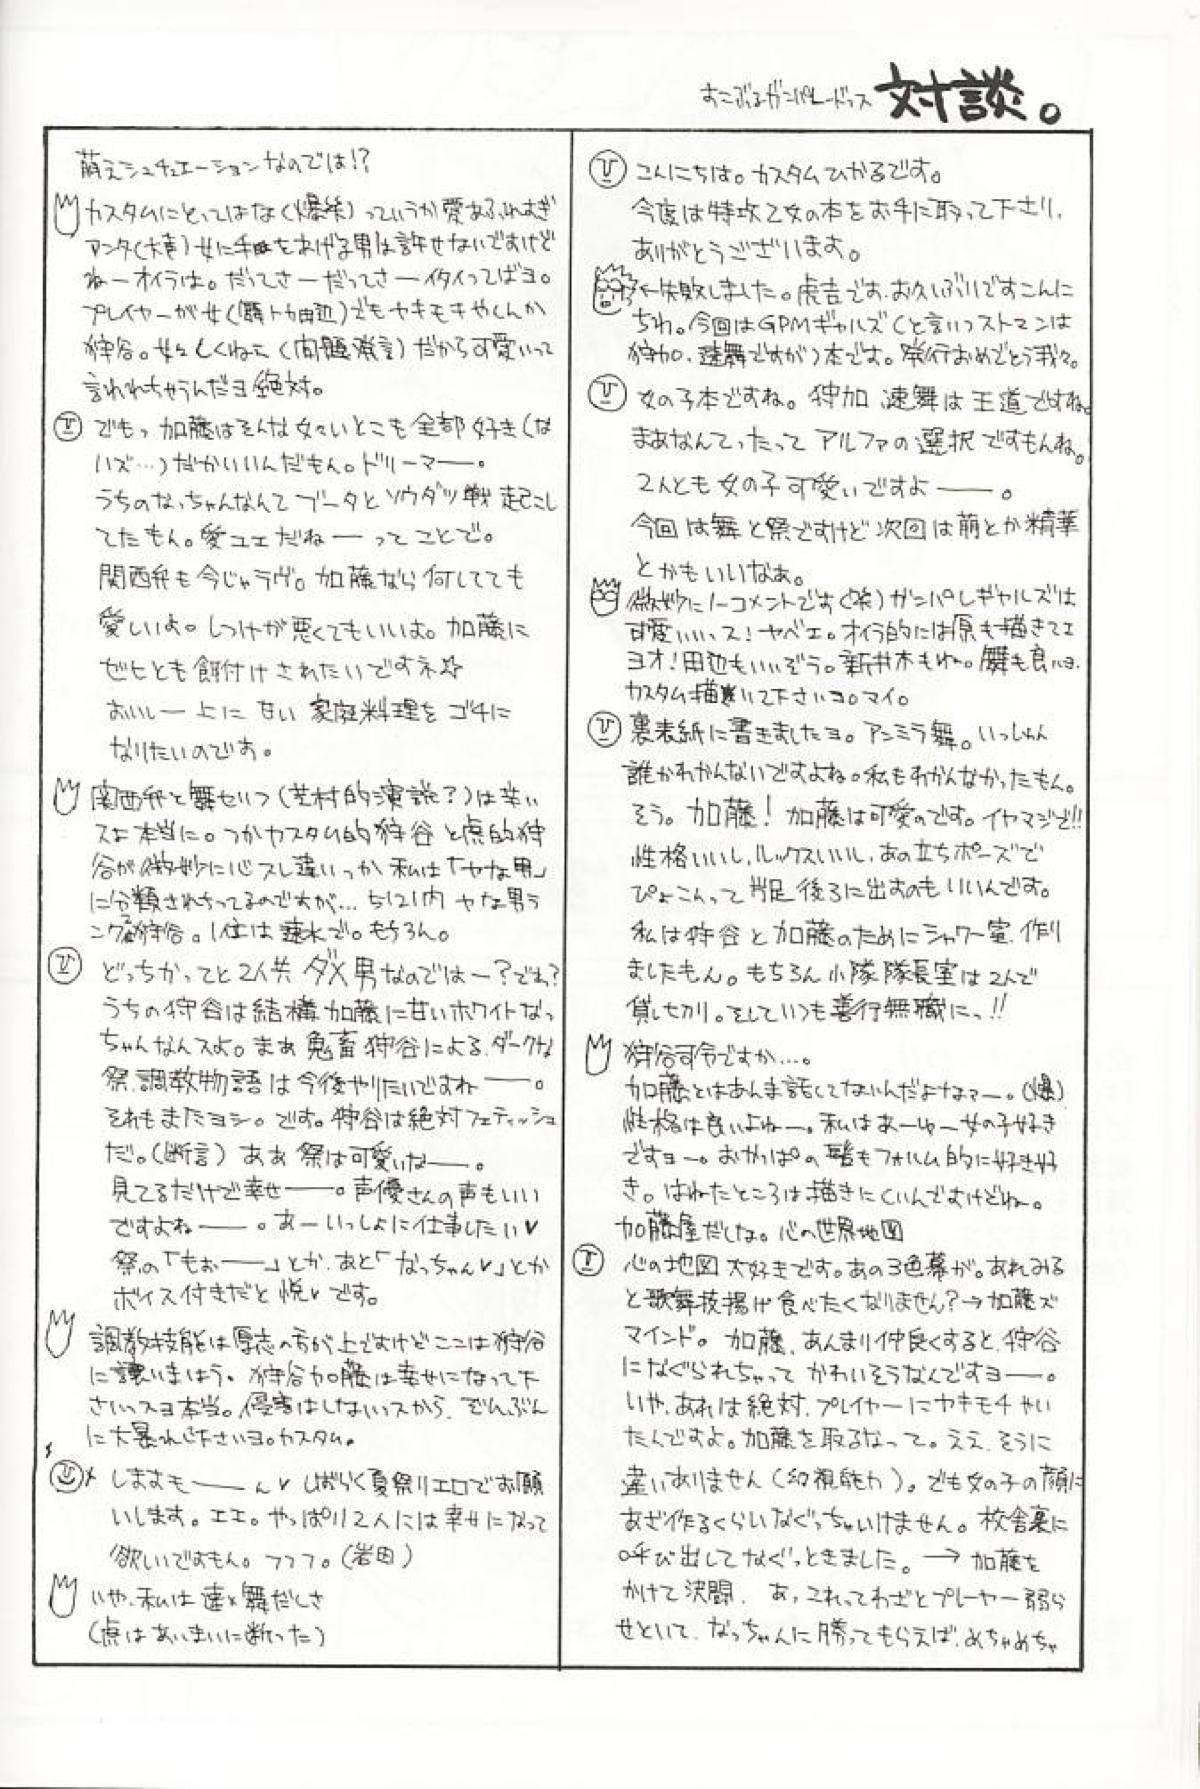 すこぶるガンパレードっス 対談。
こんにちは。カスタムひかるです。
今度は特攻乙女の本をお手に取って下さり、
ありがとうございます。
←失敗しました。虎吉です。お久しぶりですこんに
ちわ。今回はGPMギャルズ(と言いつストマンは
狩加、速舞ですが)本です。発行おめでとう我々。
女の子本ですね。狩加 速舞は王道ですね。
まあなんてったって アルファの選択ですもんね。
2人とも女の子可愛いですよ――。
今回は舞と祭ですけど次回は萌とか精華
とかもいいなあ。
微妙にノーコメントです(笑)ガンパレギャルズは
可愛いいっス!ヤベエ。オイラ的には原も描きてェ
ヨオ!田辺もいいぞう。新井木もね。舞も良いヨ。
カスタム描いて下さいヨ。マイ。
裏表紙に書きましたヨ。アンミラ舞。いっしゅん
誰かわかんないですよね。私もわかんなかったもん。
そう。加藤!加藤は可愛いのです。イヤマジで!!
性格いいし、ルックスいいし、あの立ちポーズで
ぴょこんって片足後ろに出すのもいいんです。
私は狩谷と加藤のためにシャワー室作り
ましたもん。もちろん小隊隊長室は2人で
貸しきり。そしていつも善行無職にっ!!
狩谷司令ですか…。
加藤とはあんま話してないんだよなァー。(爆)
性格は良いよねー。私はあーゆー女の子好き
ですヨー。おかっぱの髪もフォルム的に好き好
き。はねたところは描きにくいんですけどね。
加藤屋だしな。心の世界地図
心の地図大好きです。あの3色幕が。あれみる
と歌舞伎揚げ食べたくなりません?→加藤ズ
マインド。加藤、あんまり仲良くすると、狩谷
になぐられちゃって かわいそうなんですヨ―。
いや、あれは絶対、プレイヤーにヤキモチやい
たんですよ。加藤を取るなって。ええ、そうに
違いありません(幻視能力)。でも女の子の顔に
あざ作るくらいなぐっちゃいけません。校舎裏に
呼び出してなぐっときました。→ 加藤を
かけて決闘、あ、これってわざとプレーヤー弱ら
せといて、なっちゃんに勝ってもらえば、めちゃめちゃ
萌えシュチュエーションなのでは!?
カスタムにとってはな(爆笑)っていうか愛あふれすぎ
アンタ(大声)女に手をあげる男は許せないですけど
ねーオイラは。だってさーだってさーイタイってばヨ。
プレイヤーが女(舞トカ田辺)でもヤキモキやくんか
狩谷。女々しくねェ(問題発言)だから可愛いって
言われちゃうんだヨ絶対。
でもっ加藤はそんな女々いとこも全部好き(な
ハズ…)だからいいんだもん。ドリーマー―。
うちのなっちゃんなんてブータとソウダツ戦起こし
てたもん。愛ユエだねー ってことで。
関西弁も今じゃラヴ。加藤なら何してても
愛しいよ。しつけが悪くてもいいよ。加藤に
ぜヒとも餌付けされたいですネ☆
おいしー上に甘い 家庭料理をゴチに
なりたいのです。
関西弁と舞せりつ(芝村的演説?)は辛い
スよ本当に。つかカスタム的狩谷と虎的狩
谷が微妙に心スレ違いっか 私は「ヤな男」
に分類されちってるのですが…
ング狩谷。1位は速水で。もちろん。
どっちかってと2人共 ダメ男なのではー?でね?
うちの狩谷は結構 加藤に甘いホワイトなっ
ちゃんなんスよ。まあ鬼畜狩谷による、ダークな
祭、調教物語は今後やりたいですねー―。
それもまたヨシ。です。狩谷は絶対フェティッシュ
だ。(断言)ああ 祭は可愛いなー―。
見てるだけで幸せー―。声優さんの声もいい
ですよねー―。あーいっしょに仕事したい♥
祭の「もぉー―」とか、あと「なっちゃん♥」とか
ボイス付きだと悦♥です。
調教技能は厚志の方が上ですけどここは狩谷
に譲いましょう。狩谷加藤は幸せになって下
さいっスヨ本当。侵害はしないっスから、ぞんぶん
に大暴れ下さいヨ。カスタム。
しますもー―ん♥ しばらく夏祭りエロでお願
いします。エエ。やっぱり2人には幸せになって
欲しいですもん。フフフ。(岩田)
いや、私は速と舞だしさ
(虎はあいまいに断った)